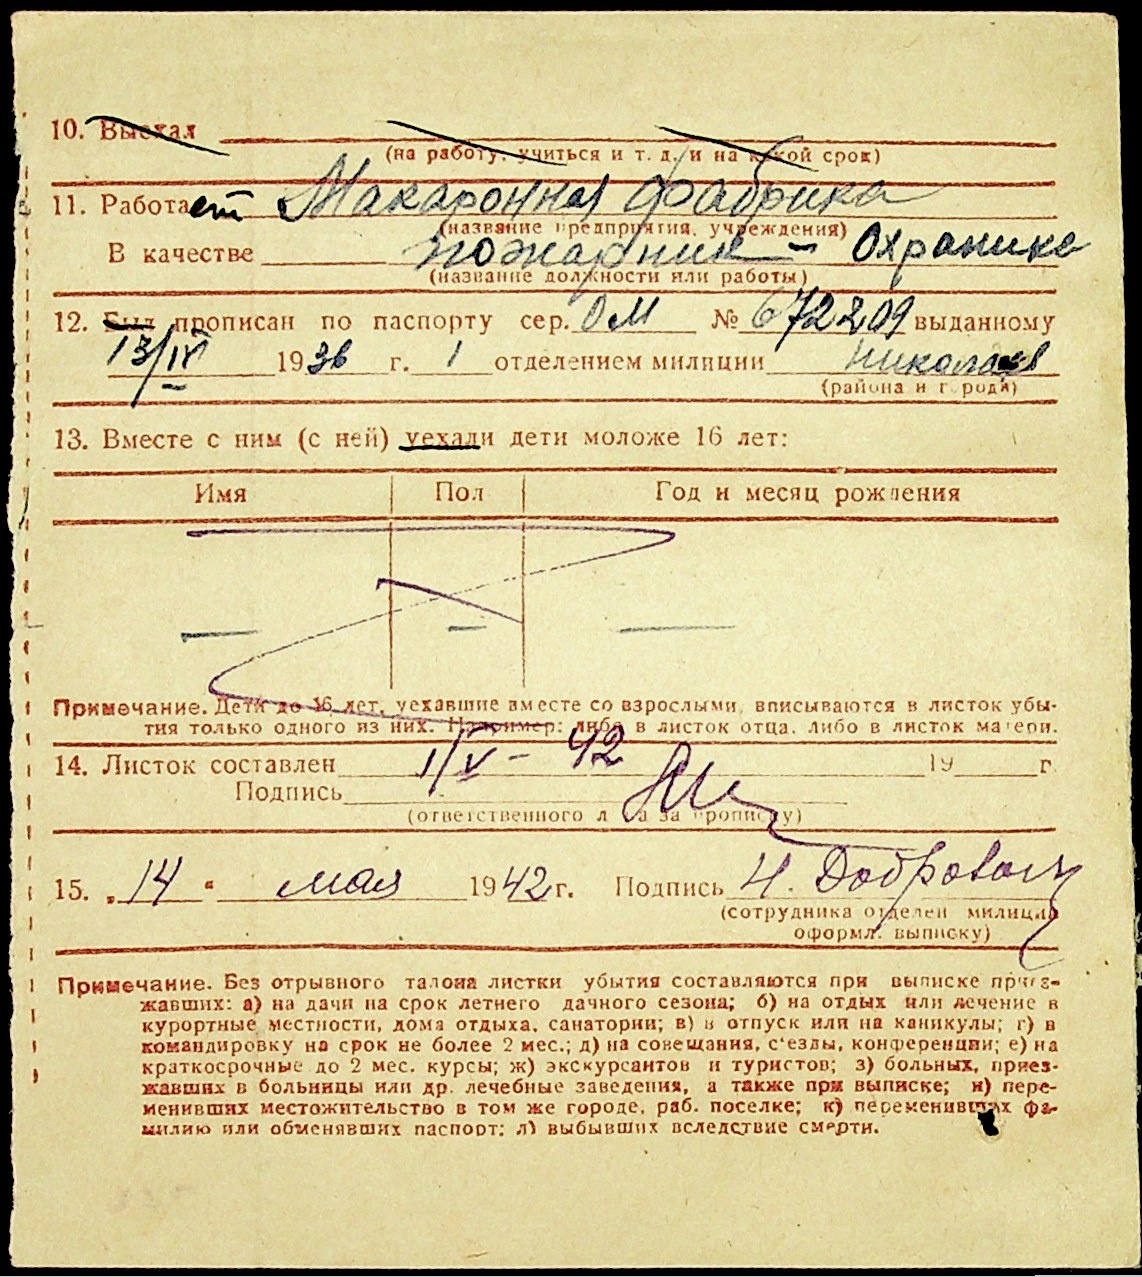 10. Выехал
(на работу, учиться и т. д. и на какой срок)
11. Работает Макаронная фабрика
(название предприятия, учреждения)
В качестве пожарник – Охранике
(название должности или работы)
12. Был прописан по паспорту сер. ОМ № 672209 выданному
13/IV 1936 г. 1 отделением милиции Николаев
(района и города)
13. Вместе с ним (с ней) уехали дети моложе 16 лет:
Имя Пол Год и месяц рождения
— — —
Примечание. Дети до 16 лет, уехавшие вместе со взрослыми, вписываются в листок убы-
тия только одного из них. Например: либо в листок отца, либо в листок матери.
14. Листок составлен 1/V – 42 19 г.
Подпись
(ответственного лица за прописку)
15. „14“ мая 1942 г. Подпись Н. Доброволь
(сотрудника отделен милиции
оформл. выписку)
Примечание. Без отрывного талона листки убытия составляются при выписке приез-
жавших: а) на дачи на срок летнего дачного сезона; б) на отдых или лечение в
курортные местности, дома отдыха, санатории; в) в отпуск или на каникулы; г) в
командировку на срок не более 2 мес.; д) на совещания, с'езды, конференции; е) на
краткосрочные до 2 мес. курсы; ж) экскурсантов и туристов; з) больных, приез-
жавших в больницы или др. лечебные заведения, а также при выписке; и) пере-
менивших местожительство в том же городе, раб. поселке; к) переменивших фа-
милию или обменявших паспорт; л) выбывших вследствие смерти.